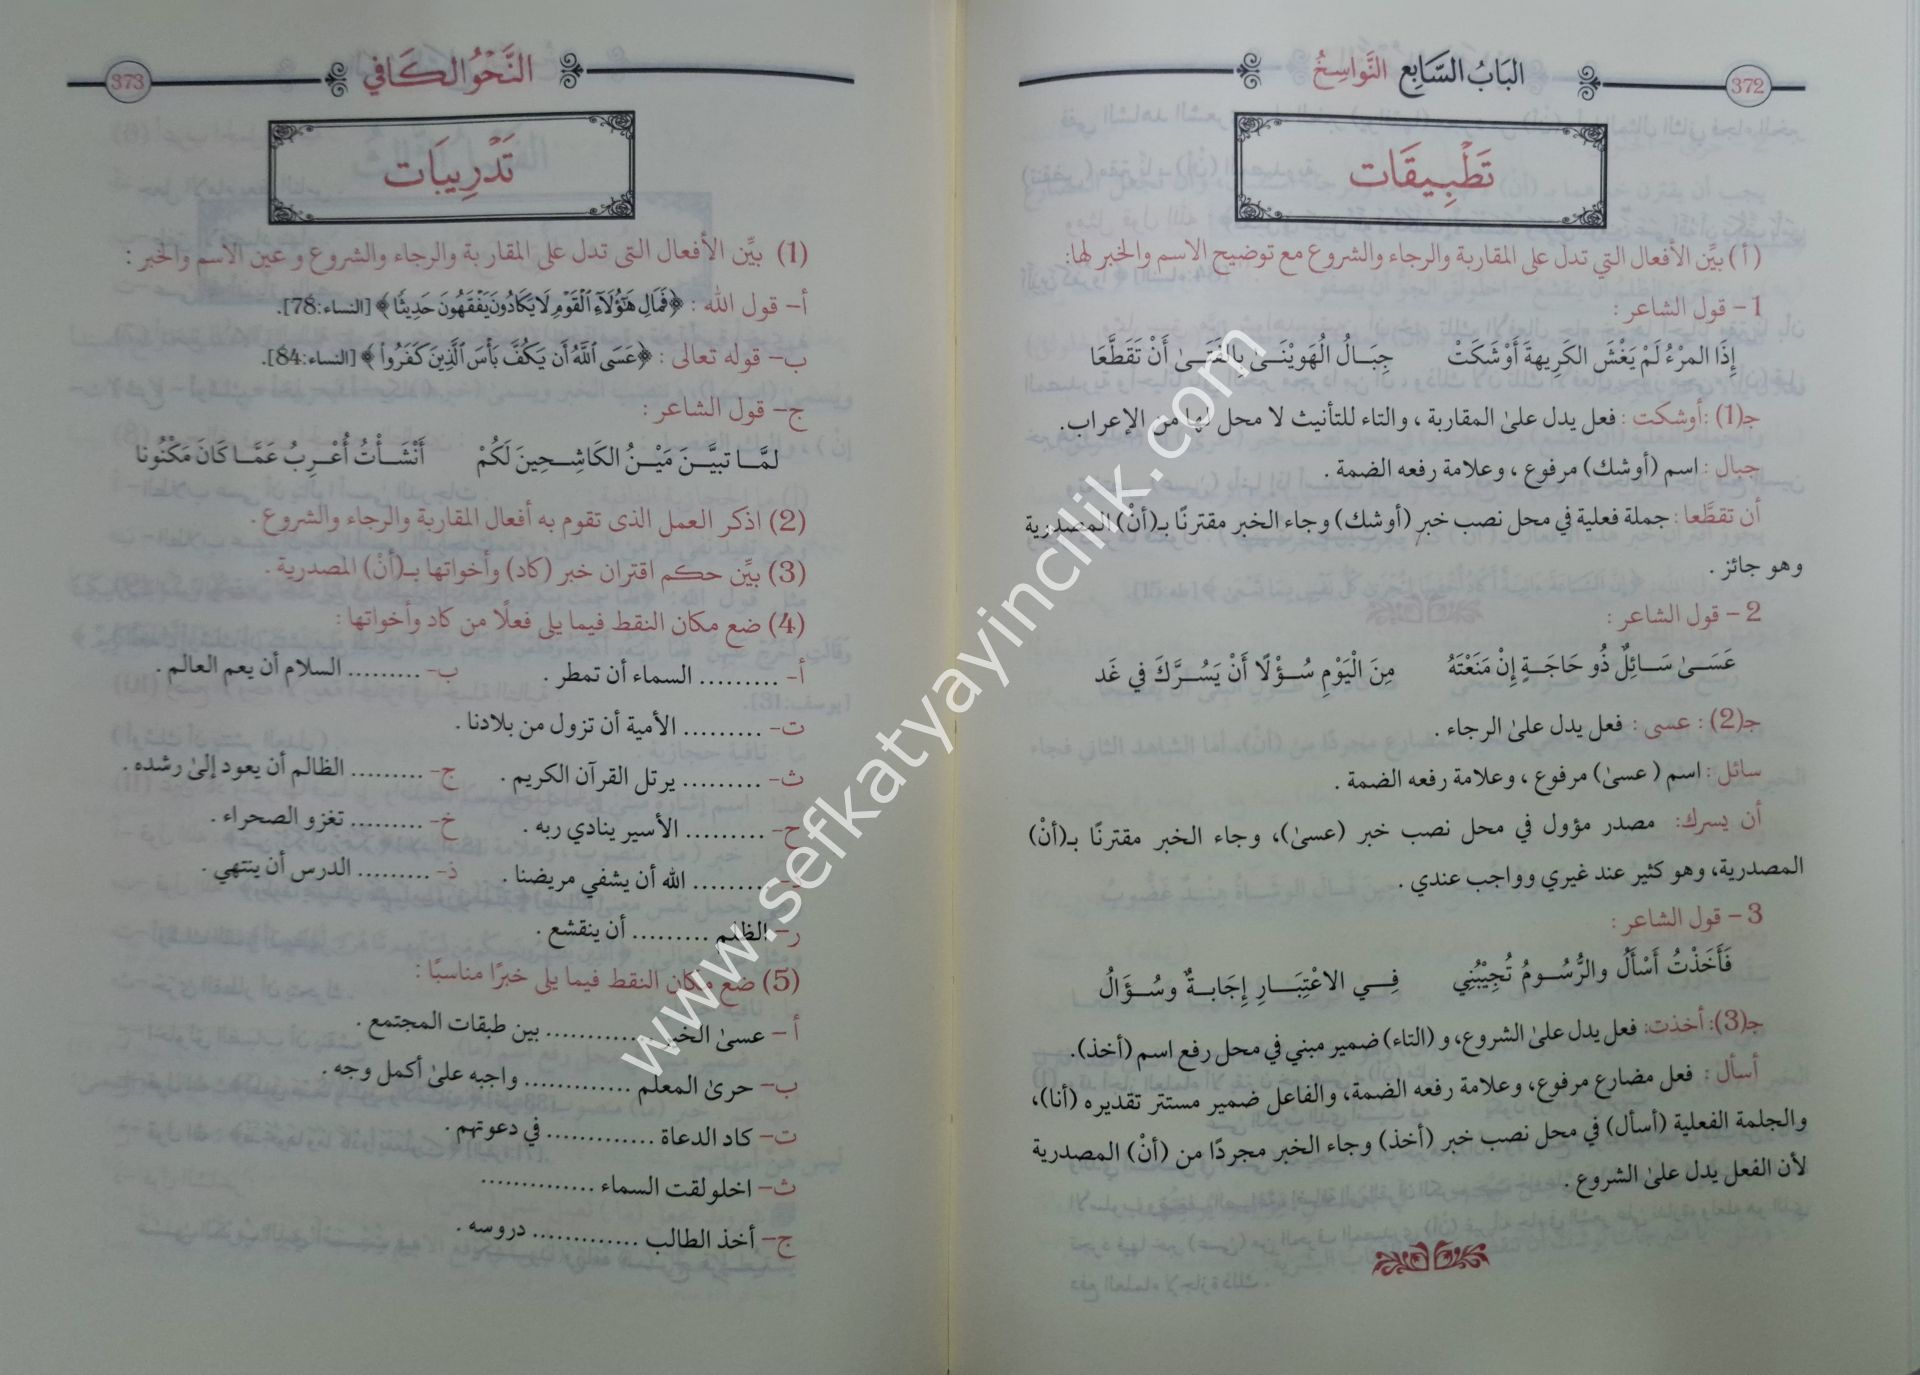 372
الباب السَّابع النَّواسِخُ
تَطْبِيقَات
(أ) بيِّن الأفعال التي تدل على المقاربة والرجاء والشروع مع توضيح الاسم والخبر لها:
1- قول الشاعر :
إِذَا المرْءُ لَمْ يَغْشَ الكَرِيهةَ أَوْشَكَتْ جِبَالُ الْهَوَيْنَىٰ بِالْفَتَىٰ أَنْ تَقَطَّعَا
جـ(1) :أوشكت : فعل يدل علىٰ المقاربة ، والتاء للتأنيث لا محل لها من الإعراب.
جبال : اسم (أوشك) مرفوع ، وعلامة رفعه الضمة .
أن تقطَّعا : جملة فعلية في محل نصب خبر (أوشك) وجاء الخبر مقترنًا بـ(أنْ) المصدرية
وهو جائز .
2- قول الشاعر :
عَسَىٰ سَائِلٌ ذُو حَاجَةٍ إِنْ مَنَعْتَهُ مِنَ الْيَوْمِ سُؤْلًا أَنْ يَسُرَّكَ في غَد
جـ(2) : عسى : فعل يدل علىٰ الرجاء .
سائل : اسم ( عسىٰ) مرفوع ، وعلامة رفعه الضمة .
أن يسرك: مصدر مؤول في محل نصب خبر (عسىٰ)، وجاء الخبر مقترنًا بـ(أنْ)
المصدرية، وهو كثير عند غيري وواجب عندي .
3- قول الشاعر :
فَأَخَذْتُ أَسْأَلُ والرُّسُومُ تُجِيْبُنِي فِي الاعْتِبَارِ إِجَابةٌ وسُؤَالُ
جـ(3): أخذت: فعل يدل علىٰ الشروع، و (التاء) ضمير مبني في محل رفع اسم (أخذ).
أسأل : فعل مضارع مرفوع، وعلامة رفعه الضمة، والفاعل ضمير مستتر تقديره (أنا)،
والجلمة الفعلية (أسأل) في محل نصب خبر (أخذ) وجاء الخبر مجردًا من (أنْ) المصدرية
لأن الفعل يدل علىٰ الشروع .
النَّحْوُ الكَافي
373
تَدْرِيبَات
(1) بيِّن الأفعال التى تدل على المقاربة والرجاء والشروع و عين الاسم والخبر :
أ- قول الله : ﴿فَمَالِ هَٰٓؤُلَآءِ ٱلْقَوْمِ لَا يَكَادُونَ يَفْقَهُونَ حَدِيثًا﴾ [النساء:78].
ب- قوله تعالى : ﴿عَسَى ٱللَّهُ أَن يَكُفَّ بَأْسَ ٱلَّذِينَ كَفَرُواْ﴾ [النساء:84].
ج- قول الشاعر :
لمَّا تبيَّنَ مَيْنُ الكَاشِحِينَ لَكُمْ أَنْشَأْتُ أُعْرِبُ عَمَّا كَانَ مَكْنُونا
(2) اذكر العمل الذى تقوم به أفعال المقاربة والرجاء والشروع .
(3) بيِّن حكم اقتران خبر (كاد) وأخواتها بـ(أنْ) المصدرية .
(4) ضع مكان النقط فيما يلى فعلًا من كاد وأخواتها :
أ- ......... السماء أن تمطر . ب- ......... السلام أن يعم العالم .
ت- ......... الأمية أن تزول من بلادنا .
ث- ......... يرتل القرآن الكريم . ج- ......... الظالم أن يعود إلىٰ رشده .
ح- ......... الأسير ينادي ربه . خ- ......... تغزو الصحراء .
د- ......... الله أن يشفي مريضنا . ذ- ......... الدرس أن ينتهي .
ر- الظلم ......... أن ينقشع .
(5) ضع مكان النقط فيما يلى خبرًا مناسبًا :
أ- عسىٰ الخير ............ بين طبقات المجتمع .
ب- حرىٰ المعلم ............ واجبه علىٰ أكمل وجه .
ت- كاد الدعاة ............ في دعوتهم .
ث- اخلولقت السماء ............
ج- أخذ الطالب ............ دروسه .
www.sefkatyayincilik.com